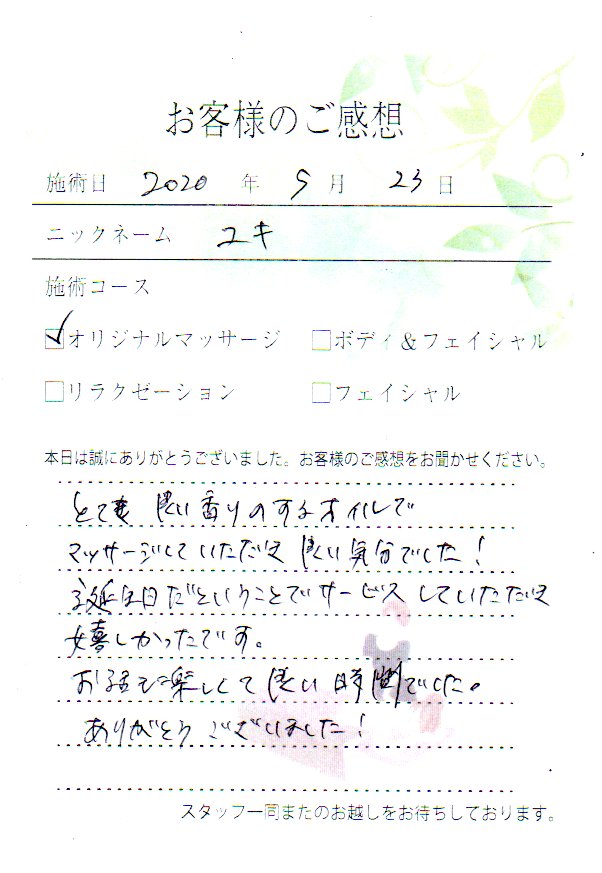 お客様のご感想
施術日 2020 年 5 月 23 日
ニックネーム ユキ
施術コース
☑オリジナルマッサージ □ボディ＆フェイシャル
□リラクゼーション □フェイシャル
本日は誠にありがとうございました。お客様のご感想をお聞かせください。
とても 良い香りのするオイルで
マッサージしていただき 良い気分でした！
誕生日だということでサービスしていただき
嬉しかったです。
お話も楽しくて良い時間でした。
ありがとうございました！
スタッフ一同またのお越しをお待ちしております。